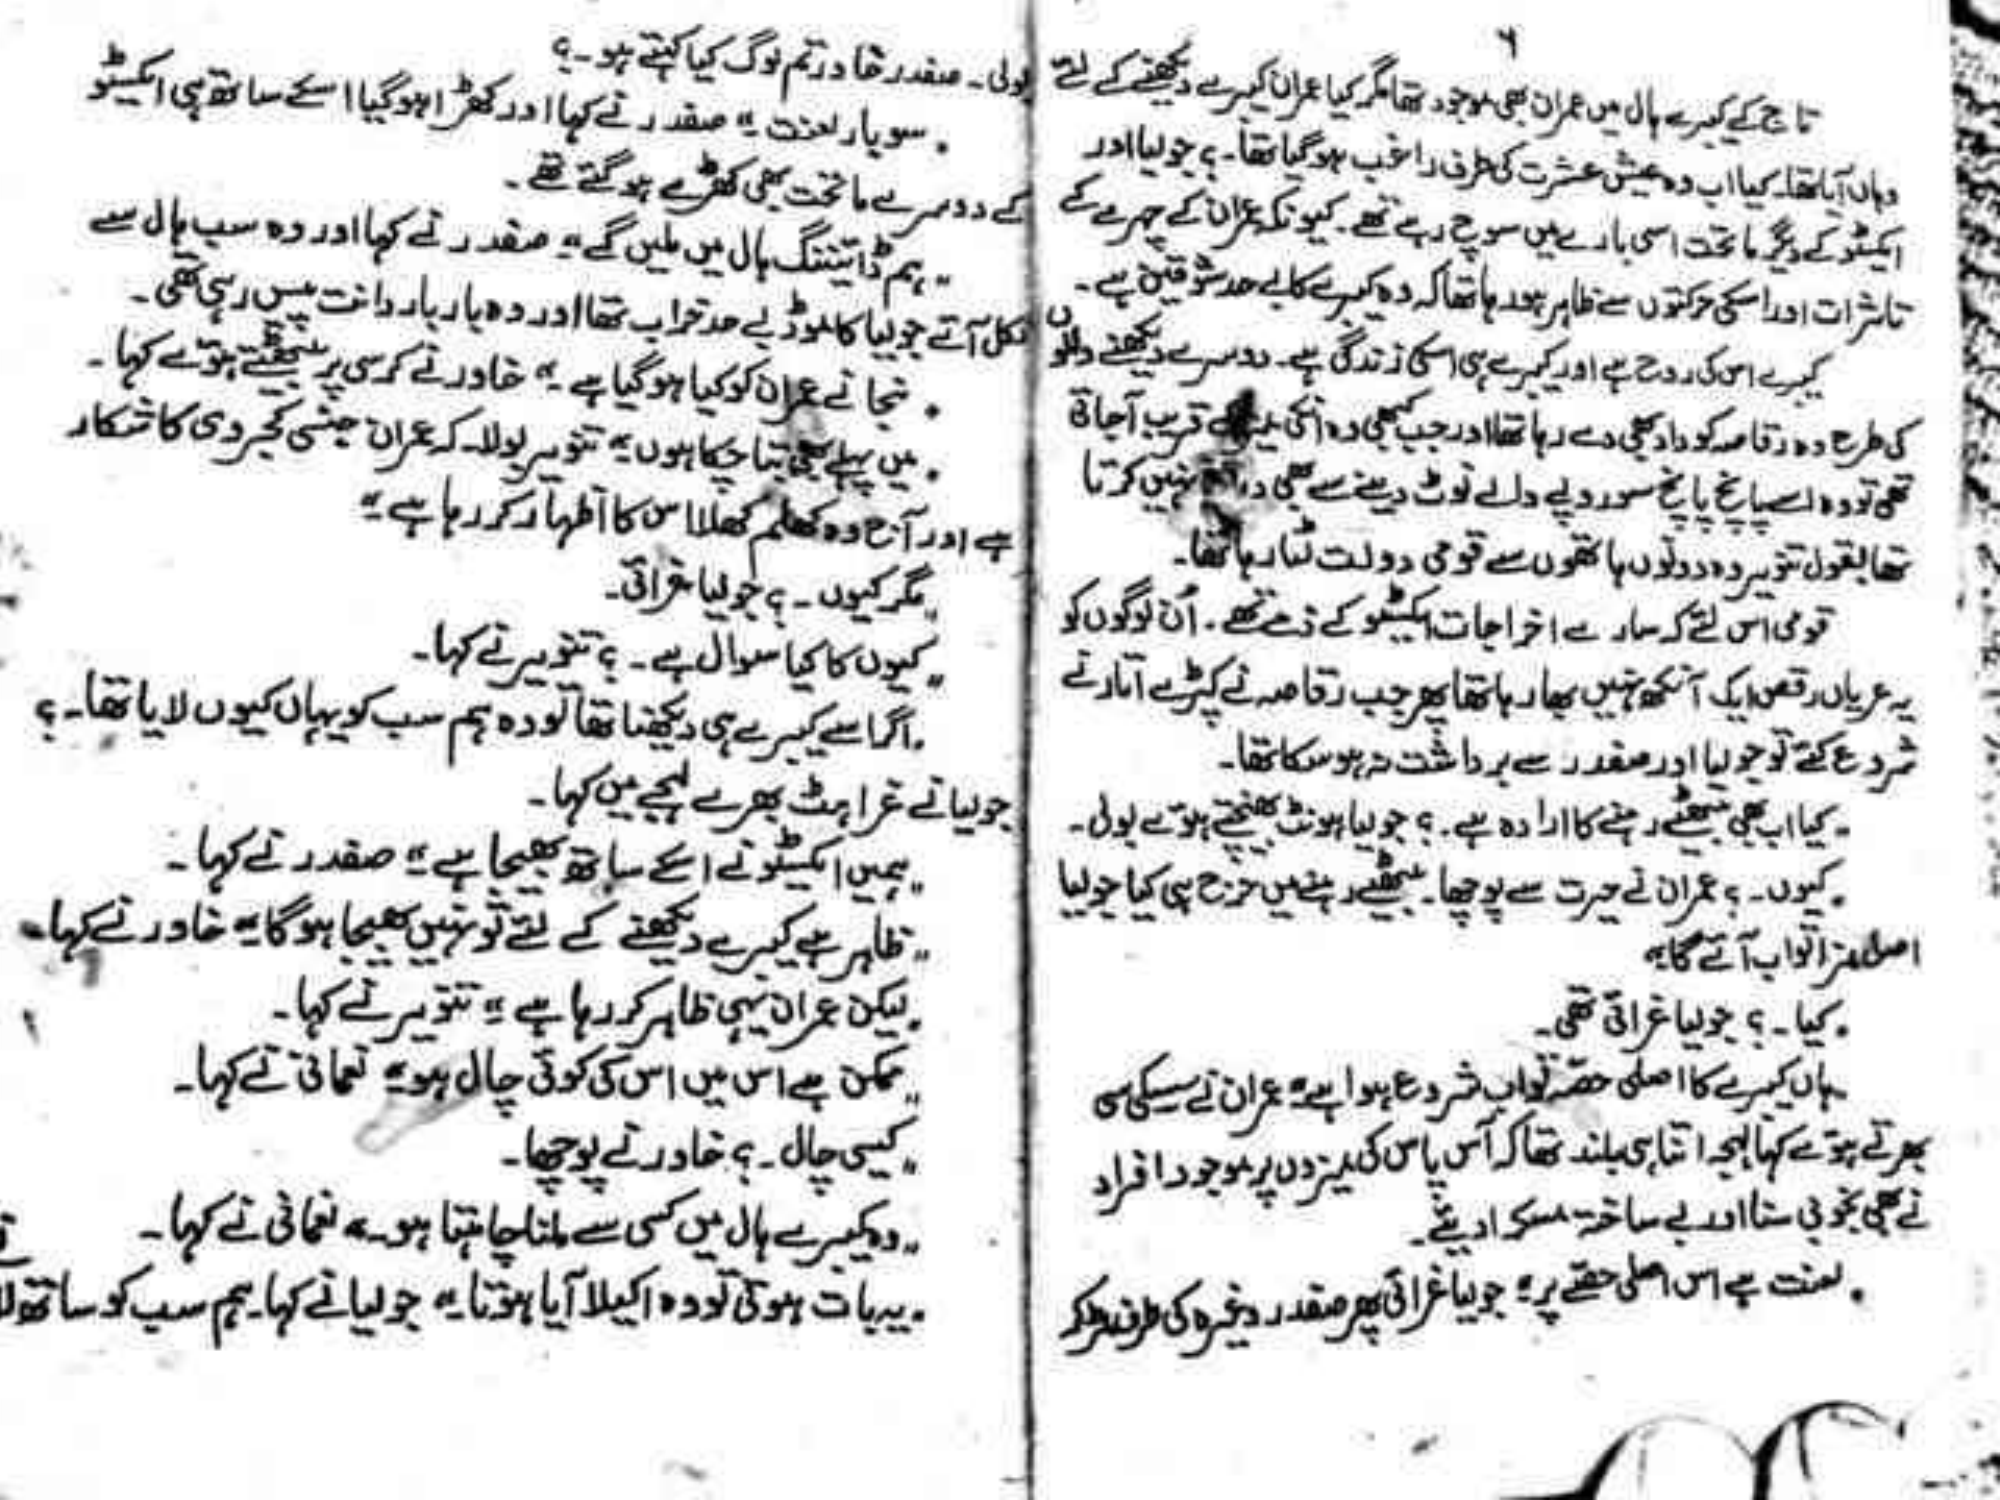 ۶
تاج کے کیبرے ہال میں عمران بھی موجود تھا مگر کیا عمران کیبرے دیکھنے کے لئے
وہاں آیا تھا۔ کیا اب وہ عیش عشرت کی طرف راغب ہو گیا تھا۔ ؟ جولیا اور
ایکسٹو کے دیگر ماتحت اسی بارے میں سوچ رہے تھے۔ کیونکہ عمران کے چہرے کے
تاثرات اور اسکی حرکتوں سے ظاہر ہو رہا تھا کہ وہ کیبرے کا بے حد شوقین ہے۔
کیبرے اس کی روح ہے اور کیبرے ہی اسکی زندگی ہے۔ دوسرے دیکھنے والوں
کی طرح وہ رقاصہ کو داد بھی دے رہا تھا اور جب کبھی وہ انکی قریب آجاتی
تھی تو وہ اسے پانچ پانچ سو روپے والے نوٹ دینے سے بھی نہیں کرتا
تھا بقول تنویر وہ دونوں ہاتھوں سے قومی دولت لٹا رہا تھا۔
قومی اس لئے کہ سارے اخراجات ایکسٹو کے ذمے تھے۔ اُن لوگوں کو
یہ عریاں رقص ایک آنکھ نہیں بھا رہا تھا پھر جب رقاصہ نے کپڑے اتارنے
شروع کئے تو جولیا اور صفدر سے برداشت نہ ہو سکا تھا۔
۔ کیا اب بھی بیٹھے رہنے کا ارادہ ہے۔ ؟ جولیا ہونٹ بھینچتے ہوئے بولی۔
۔ کیوں۔ ؟ عمران نے حیرت سے پوچھا۔ بیٹھے رہنے میں حرج ہی کیا جولیا
اصل مزا تو اب آئے گا۔"
۔ کیا۔ ؟ جولیا غرائی تھی۔
۔ ہاں کیبرے کا اصلی حصہ تو اب شروع ہوا ہے۔" عمران نے سسکی سی
بھرتے ہوئے کہا لہجہ اتنا ہی بلند تھا کہ آس پاس کی میزوں پر موجود افراد
نے بھی بخوبی سنا اور بے ساختہ مسکرا دیئے۔
۔ لعنت ہے اس اصلی حصے پر۔" جولیا غرائی پھر صفدر وغیرہ کی طرف مڑ کر
بولی۔ صفدر خاور تم لوگ کیا کہتے ہو۔ ؟
۔ سو بار لعنت۔" صفدر نے کہا اور کھڑا ہو گیا اسکے ساتھ ہی ایکسٹو
کے دوسرے ماتحت بھی کھڑے ہو گئے تھے۔
"ہم ڈائیننگ ہال میں ملیں گے۔" صفدر نے کہا اور وہ سب ہال سے
نکل آئے جولیا کا موڈ بے حد خراب تھا اور وہ بار بار دانت پیس رہی تھی۔
۔ نجانے عمران کو کیا ہو گیا ہے۔" خاور نے کرسی پر بیٹھتے ہوئے کہا۔
۔ میں پہلے بھی بتا چکا ہوں۔" تنویر بولا۔ کہ عمران جنسی کجروی کا شکار
ہے اور آج وہ کھلم کھلا اس کا اظہار کر رہا ہے۔"
"مگر کیوں۔ ؟ جولیا غرائی۔
"کیوں کا کیا سوال ہے۔ ؟ تنویر نے کہا۔
۔ اگر اسے کیبرے ہی دیکھنا تھا تو وہ ہم سب کو یہاں کیوں لایا تھا۔ ؟
جولیا نے غراہٹ بھرے لہجے میں کہا۔
"ہمیں ایکسٹو نے اسکے ساتھ بھیجا ہے۔" صفدر نے کہا۔
"ظاہر ہے کیبرے دیکھنے کے لئے تو نہیں بھیجا ہو گا۔" خاور نے کہا۔
۔ لیکن عمران یہی ظاہر کر رہا ہے۔" تنویر نے کہا۔
"ممکن ہے اس میں اس کی کوئی چال ہو۔" نعمانی نے کہا۔
"کیسی چال۔ ؟ خاور نے پوچھا۔
"وہ کیبرے ہال میں کسی سے ملنا چاہتا ہو۔" نعمانی نے کہا۔
۔ یہ بات ہوتی تو وہ اکیلا آیا ہوتا۔" جولیا نے کہا۔ ہم سب کو ساتھ